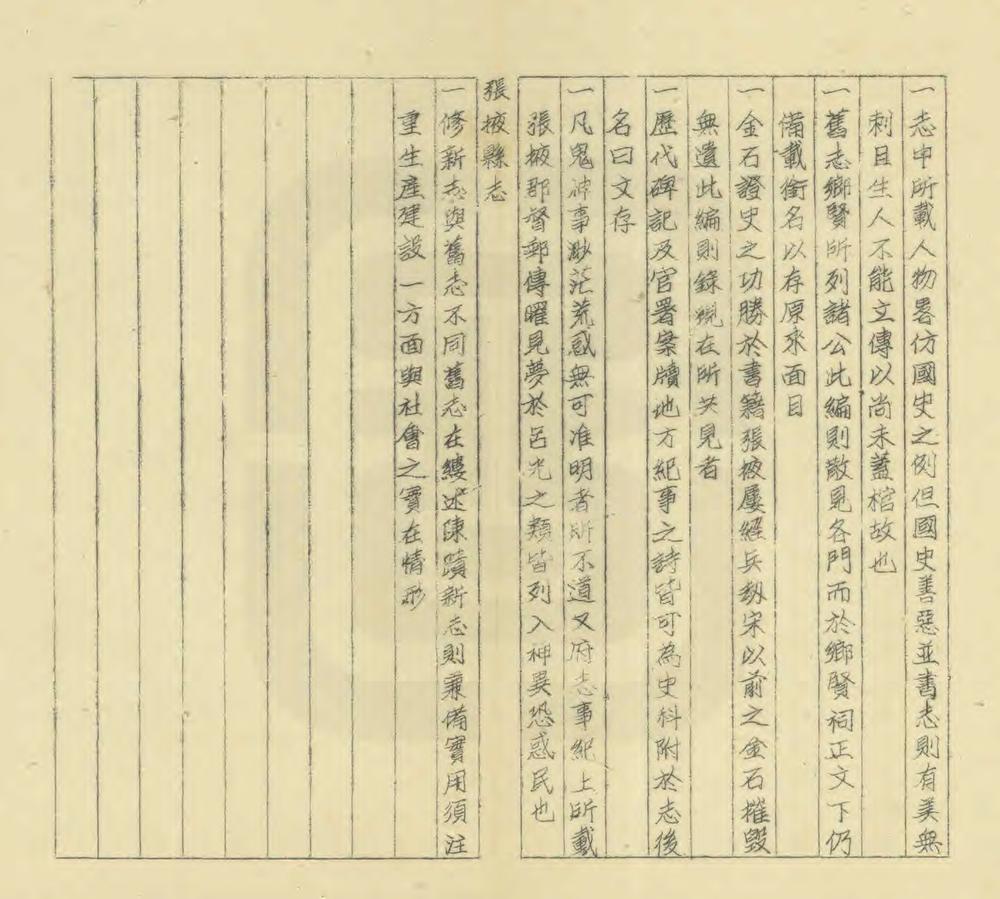 一志中所載人物畧仿國史之例但國史善惡並書志則有美無
刺且生人不能立傳以尚未蓋棺故也
一舊志鄉賢所列諸公此編則散見各門而於鄉賢祠正文下仍
備載銜名以存原來面目
一金石證史之功勝於書籍張掖屢經兵劫宋以前之金石摧毀
無遺此編則錄現在所共見者
一歷代碑記及官署案牘地方紀事之詩皆可為史料附於志後
名曰文存
一凡鬼神事渺茫荒惑無可准明者所不道又府志事紀上所載
張掖郡督郵傳曜見夢於呂光之類皆列入神異恐惑民也
張掖縣志
一修新志與舊志不同舊志在縷述陳蹟新志則兼備實用須注
重生產建設一方面與社會之實在情形